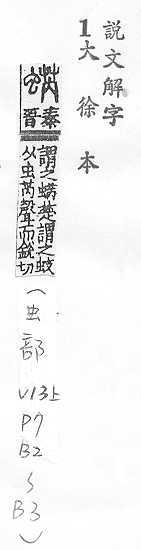 説文解字
1大徐本
蜹
秦晉
謂之蜹楚謂之蚊
从虫芮聲而銳切
(虫部
V13上
P7
B2
~
B3)